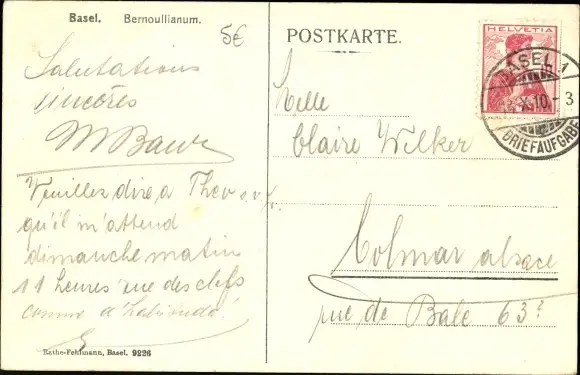 Basel. Bernoullianum.
5€
Salutations
sincères
M Baur
Veuillez dire à Theo s.v.p.
qu'il m'attend
dimanche matin
11 heures rue des clefs
comme d'habitude!
Rathe-Fehlmann, Basel. 9226
POSTKARTE.
HELVETIA
BASEL 1
X.10.-3
BRIEFAUFGABE
Melle
Claire Wilker
Colmar alsace
rue de Bale 63